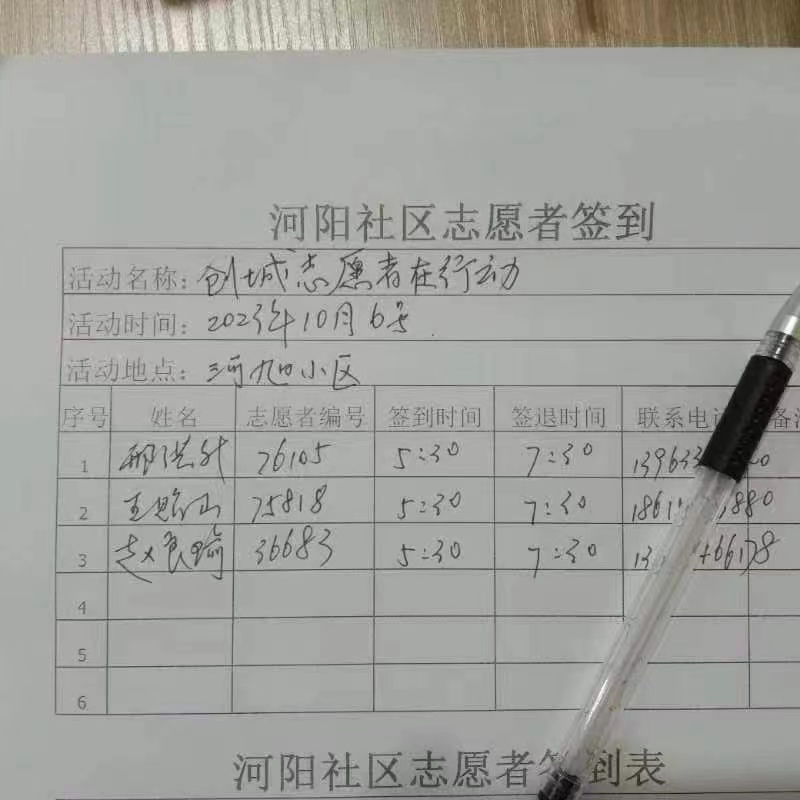 河阳社区志愿者签到
活动名称：创城志愿者在行动
活动时间：2023年10月6号
活动地点：河旭小区
序号 姓名 志愿者编号 签到时间 签退时间 联系电话 备注
1 邢洪升 76105 5:30 7:30
2 王 山 75818 5:30 7:30
3 赵良 36683 5:30 7:30
4
5
6
河阳社区志愿者签到表